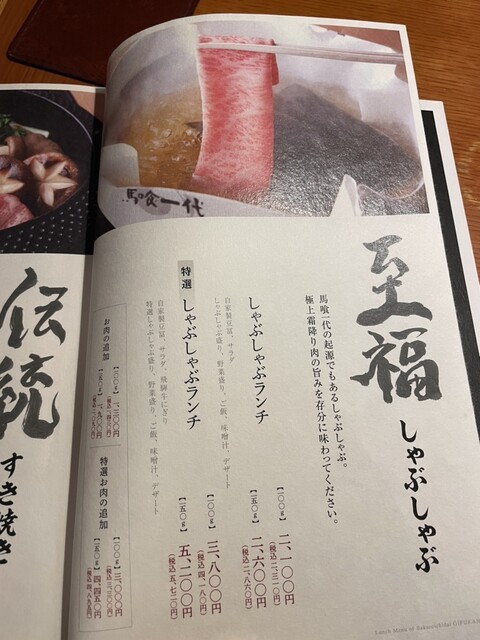 馬喰一代
至福
しゃぶしゃぶ
馬喰一代の起源でもあるしゃぶしゃぶ。
極上霜降り肉の旨みを存分に味わってください。
しゃぶしゃぶランチ
自家製豆冨、サラダ
しゃぶしゃぶ盛り、野菜盛り、ご飯、味噌汁、デザート
【一〇〇g】 二、一〇〇円
(税込二、三一〇円)
【一五〇g】 二、六〇〇円
(税込二、八六〇円)
特選
しゃぶしゃぶランチ
自家製豆冨、サラダ、飛騨牛にぎり
特選しゃぶしゃぶ盛り、野菜盛り、ご飯、味噌汁、デザート
【一〇〇g】 三、八〇〇円
(税込四、一八〇円)
【一五〇g】 五、二〇〇円
(税込五、七二〇円)
お肉の追加
【一〇〇g】 一、三〇〇円
(税込一、四三〇円)
【一五〇g】 一、九〇〇円
(税込二、〇九〇円)
特選お肉の追加
【一〇〇g】 三、〇〇〇円
(税込三、三〇〇円)
【一五〇g】 四、四五〇円
(税込四、八九五円)
伝統
すき焼き
Lunch Menu of Bakuroichidai GIFUKAN